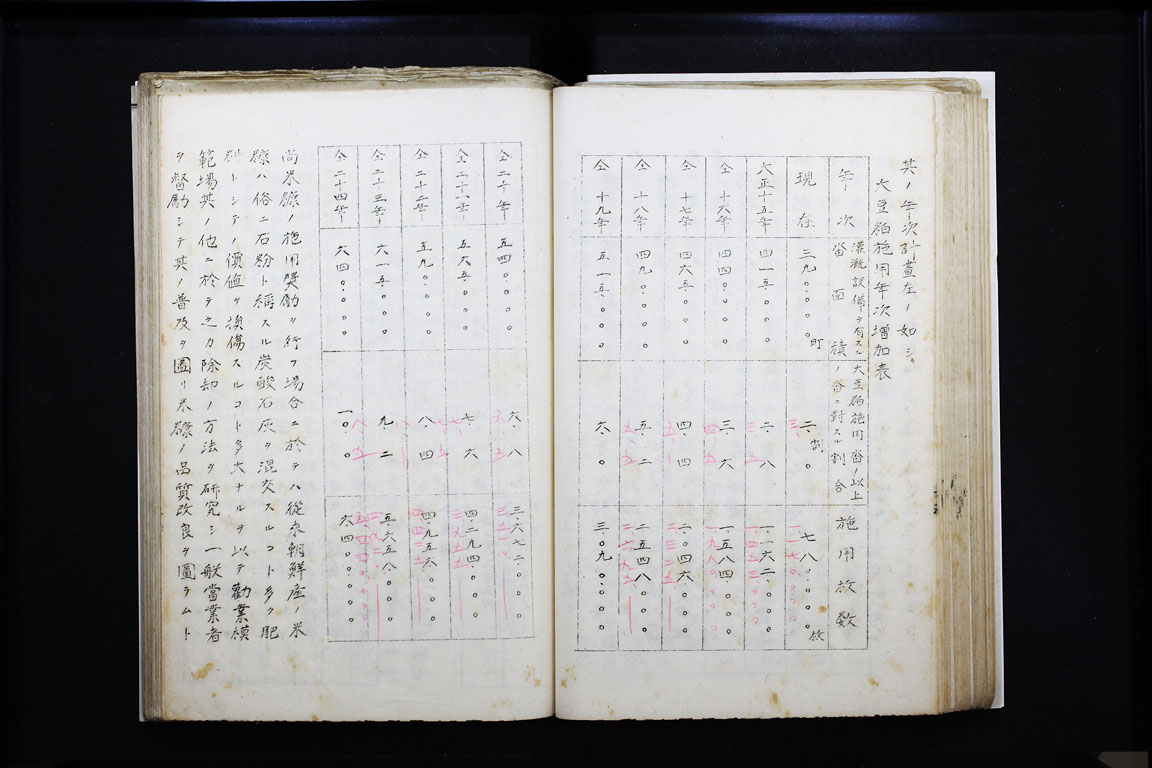 其ノ年次計畫左ノ如シ
大豆粕施用年次增加表
年次 灌漑設備ヲ有スル畓面積 大豆粕施用畓ノ以上ノ畓ニ對スル割合 施用枚數
現在 三九〇.〇〇〇町 二.〇割 七八〇.〇〇〇枚
大正十五年 四一五.〇〇〇 二.八 一.一六二.〇〇〇
仝十六年 四四〇.〇〇〇 三.六 一.五八四.〇〇〇
仝十七年 四六五.〇〇〇 四.四 二.〇四六.〇〇〇
仝十八年 四九〇.〇〇〇 五.二 二.五四八.〇〇〇
仝十九年 五一五.〇〇〇 六.〇 三.〇九〇.〇〇〇
仝二十年 五四〇.〇〇〇 六.八 三.六七二.〇〇〇
仝二十一年 五六五.〇〇〇 七.六 四.二九四.〇〇〇
仝二十二年 五九〇.〇〇〇 八.四 四.九五六.〇〇〇
仝二十三年 六一五.〇〇〇 九.二 五.六五八.〇〇〇
仝二十四年 六四〇.〇〇〇 一〇.〇 六.四〇〇.〇〇〇
尚米糠ノ施用奬勵ヲ行フ場合ニ於テハ從來朝鮮産ノ米
糠ハ俗ニ石粉ト稱スル炭酸石灰ヲ混交スルコト多ク肥
料トシテノ價値ヲ損傷スルコト多大ナルヲ以テ勸業模
範場其ノ他ニ於テ之カ除却ノ方法ヲ研究シ一般當業者
ヲ督勵シテ其ノ普及ヲ圖リ米糠ノ品質改良ヲ圖ラムト